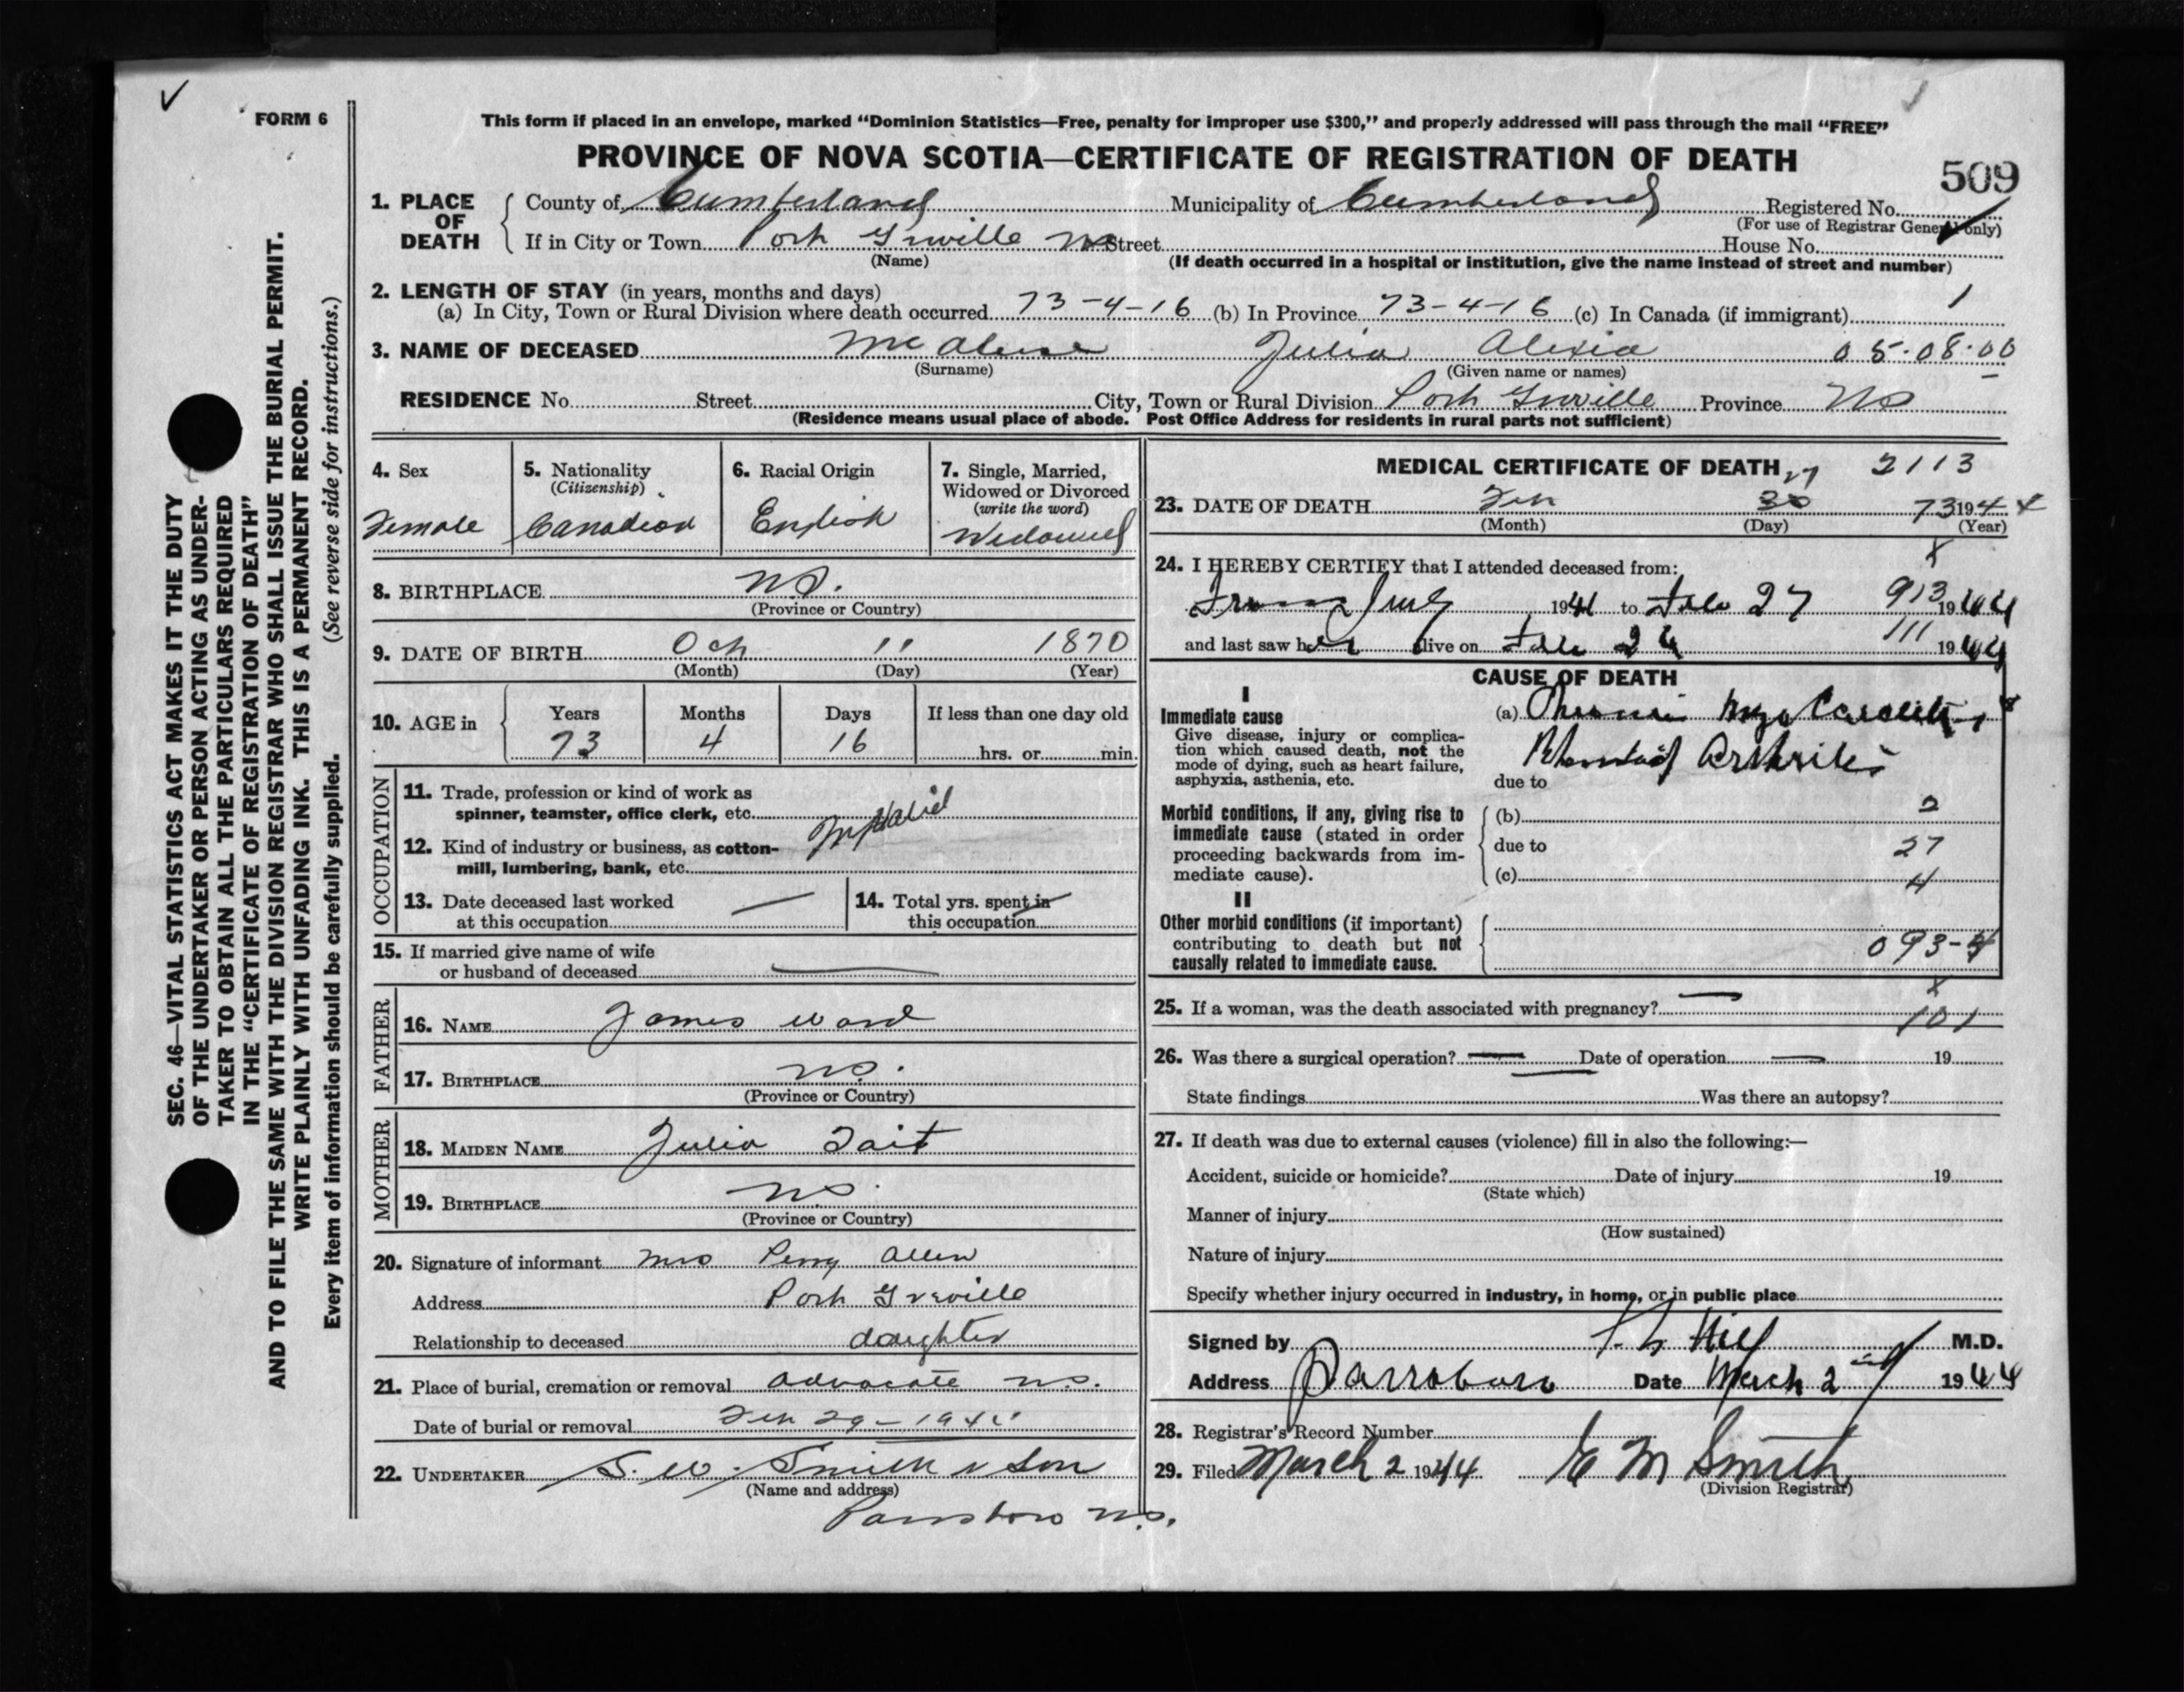 FORM 6
This form if placed in an envelope, marked “Dominion Statistics—Free, penalty for improper use $300,” and properly addressed will pass through the mail “FREE”
PROVINCE OF NOVA SCOTIA—CERTIFICATE OF REGISTRATION OF DEATH
509
1. PLACE OF DEATH
County of Cumberland Municipality of Cumberland Registered No.
(For use of Registrar General only)
If in City or Town Port Greville NS Street House No.
(Name) (If death occurred in a hospital or institution, give the name instead of street and number)
2. LENGTH OF STAY (in years, months and days)
(a) In City, Town or Rural Division where death occurred 73-4-16 (b) In Province 73-4-16 (c) In Canada (if immigrant) 1
3. NAME OF DECEASED Julia Alexia 05.08.00
(Surname) (Given name or names)
RESIDENCE No. Street City, Town or Rural Division Port Greville Province NS
(Residence means usual place of abode. Post Office Address for residents in rural parts not sufficient)
4. Sex
Female
5. Nationality
(Citizenship)
Canadian
6. Racial Origin
English
7. Single, Married,
Widowed or Divorced
(write the word)
Widowed
8. BIRTHPLACE N.S.
(Province or Country)
9. DATE OF BIRTH Oct 11 1870
(Month) (Day) (Year)
10. AGE in
Years Months Days If less than one day old
73 4 16 hrs. or min.
OCCUPATION
11. Trade, profession or kind of work as
spinner, teamster, office clerk, etc.
12. Kind of industry or business, as cotton-
mill, lumbering, bank, etc.
13. Date deceased last worked
at this occupation —
14. Total yrs. spent in
this occupation —
15. If married give name of wife
or husband of deceased —
FATHER
16. NAME James Ward
17. BIRTHPLACE N.S.
(Province or Country)
MOTHER
18. MAIDEN NAME Julia Tait
19. BIRTHPLACE N.S.
(Province or Country)
20. Signature of informant Mrs Perry Allen
Address Port Greville
Relationship to deceased daughter
21. Place of burial, cremation or removal Advocate N.S.
Date of burial or removal Feb 29-1944
22. UNDERTAKER S. W. Smith & Son
(Name and address)
Parrsboro N.S.
MEDICAL CERTIFICATE OF DEATH 2113
27
23. DATE OF DEATH Feb 30 73 1944
(Month) (Day) (Year)
24. I HEREBY CERTIFY that I attended deceased from:
1941 to Feb 27 913 1944
and last saw her alive on Feb 26 111 1944
CAUSE OF DEATH
I
Immediate cause
Give disease, injury or complica-
tion which caused death, not the
mode of dying, such as heart failure,
asphyxia, asthenia, etc.
(a) Chronic Myocarditis
Rheumatoid Arthritis
due to
Morbid conditions, if any, giving rise to
immediate cause (stated in order
proceeding backwards from im-
mediate cause).
(b) 2
due to 27
(c) 4
II
Other morbid conditions (if important)
contributing to death but not
causally related to immediate cause.
093-4
25. If a woman, was the death associated with pregnancy? —
101
26. Was there a surgical operation? — Date of operation — 19
State findings Was there an autopsy?
27. If death was due to external causes (violence) fill in also the following:—
Accident, suicide or homicide? Date of injury 19
(State which)
Manner of injury
(How sustained)
Nature of injury
Specify whether injury occurred in industry, in home, or in public place
Signed by Hill M.D.
Address Parrsboro Date March 2nd 1944
28. Registrar's Record Number
29. Filed March 2 1944 E M Smith
(Division Registrar)
SEC. 46—VITAL STATISTICS ACT MAKES IT THE DUTY
OF THE UNDERTAKER OR PERSON ACTING AS UNDER-
TAKER TO OBTAIN ALL THE PARTICULARS REQUIRED
IN THE “CERTIFICATE OF REGISTRATION OF DEATH”
AND TO FILE THE SAME WITH THE DIVISION REGISTRAR WHO SHALL ISSUE THE BURIAL PERMIT.
WRITE PLAINLY WITH UNFADING INK. THIS IS A PERMANENT RECORD.
Every item of information should be carefully supplied. (See reverse side for instructions.)